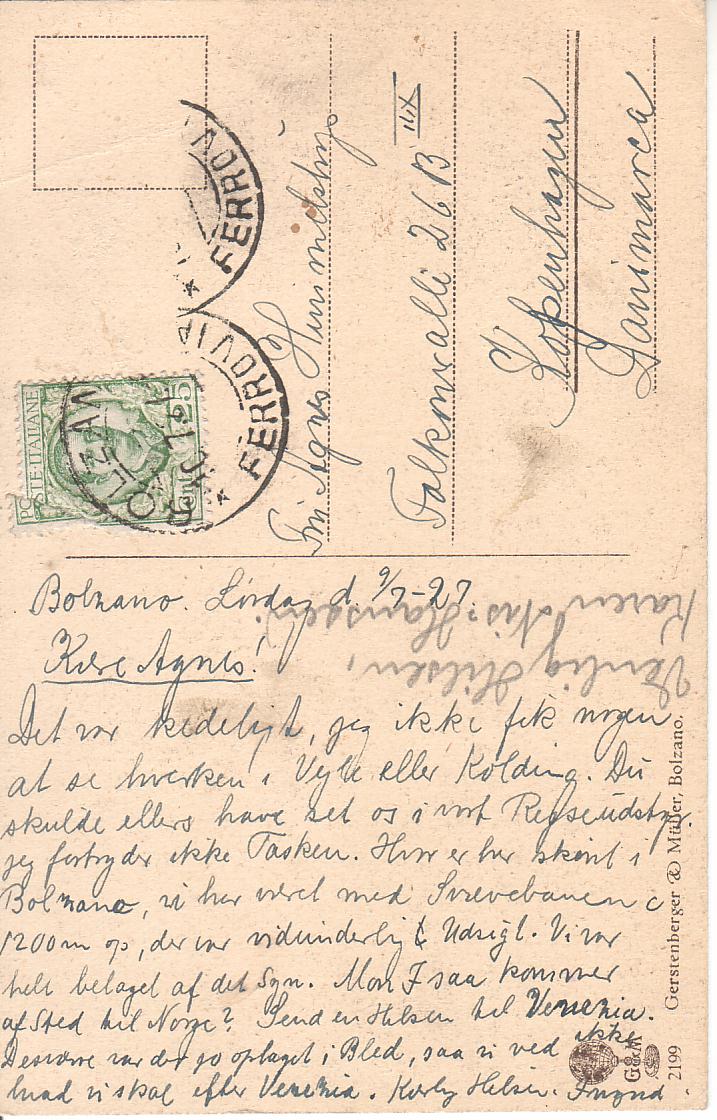 Bolzano. Lørdag d. 9/7-27.
Kære Agnes!
Det var kedeligt, jeg ikke fik nogen
at se hverken i Vejle eller Kolding. Du
skulde ellers have set os i vort Rejseudstyr.
jeg fortryder ikke Tasken. Hvor er her skønt i
Bolzano, vi har været med Svævebanen c
1200 m op, der var vidunderlig Udsigt. Vi var
helt betaget af det Syn. Mon I saa kommer
afsted til Norge? Send en Hilsen til Venezia.
Desværre var der jo optaget i Bled, saa vi ved ikke
hvad vi skal efter Venezia. Kærlig Hilsen. Ingrid.
Venlig Hilsen,
Karen Nis-Hanssen.
Frk Agnes
Falkoneralle 26 B
Kopenhagen
Danimarca
POSTE ITALIANE
FERROVIA
FERROV
2199 Gerstenberger & Müller, Bolzano.
G&M